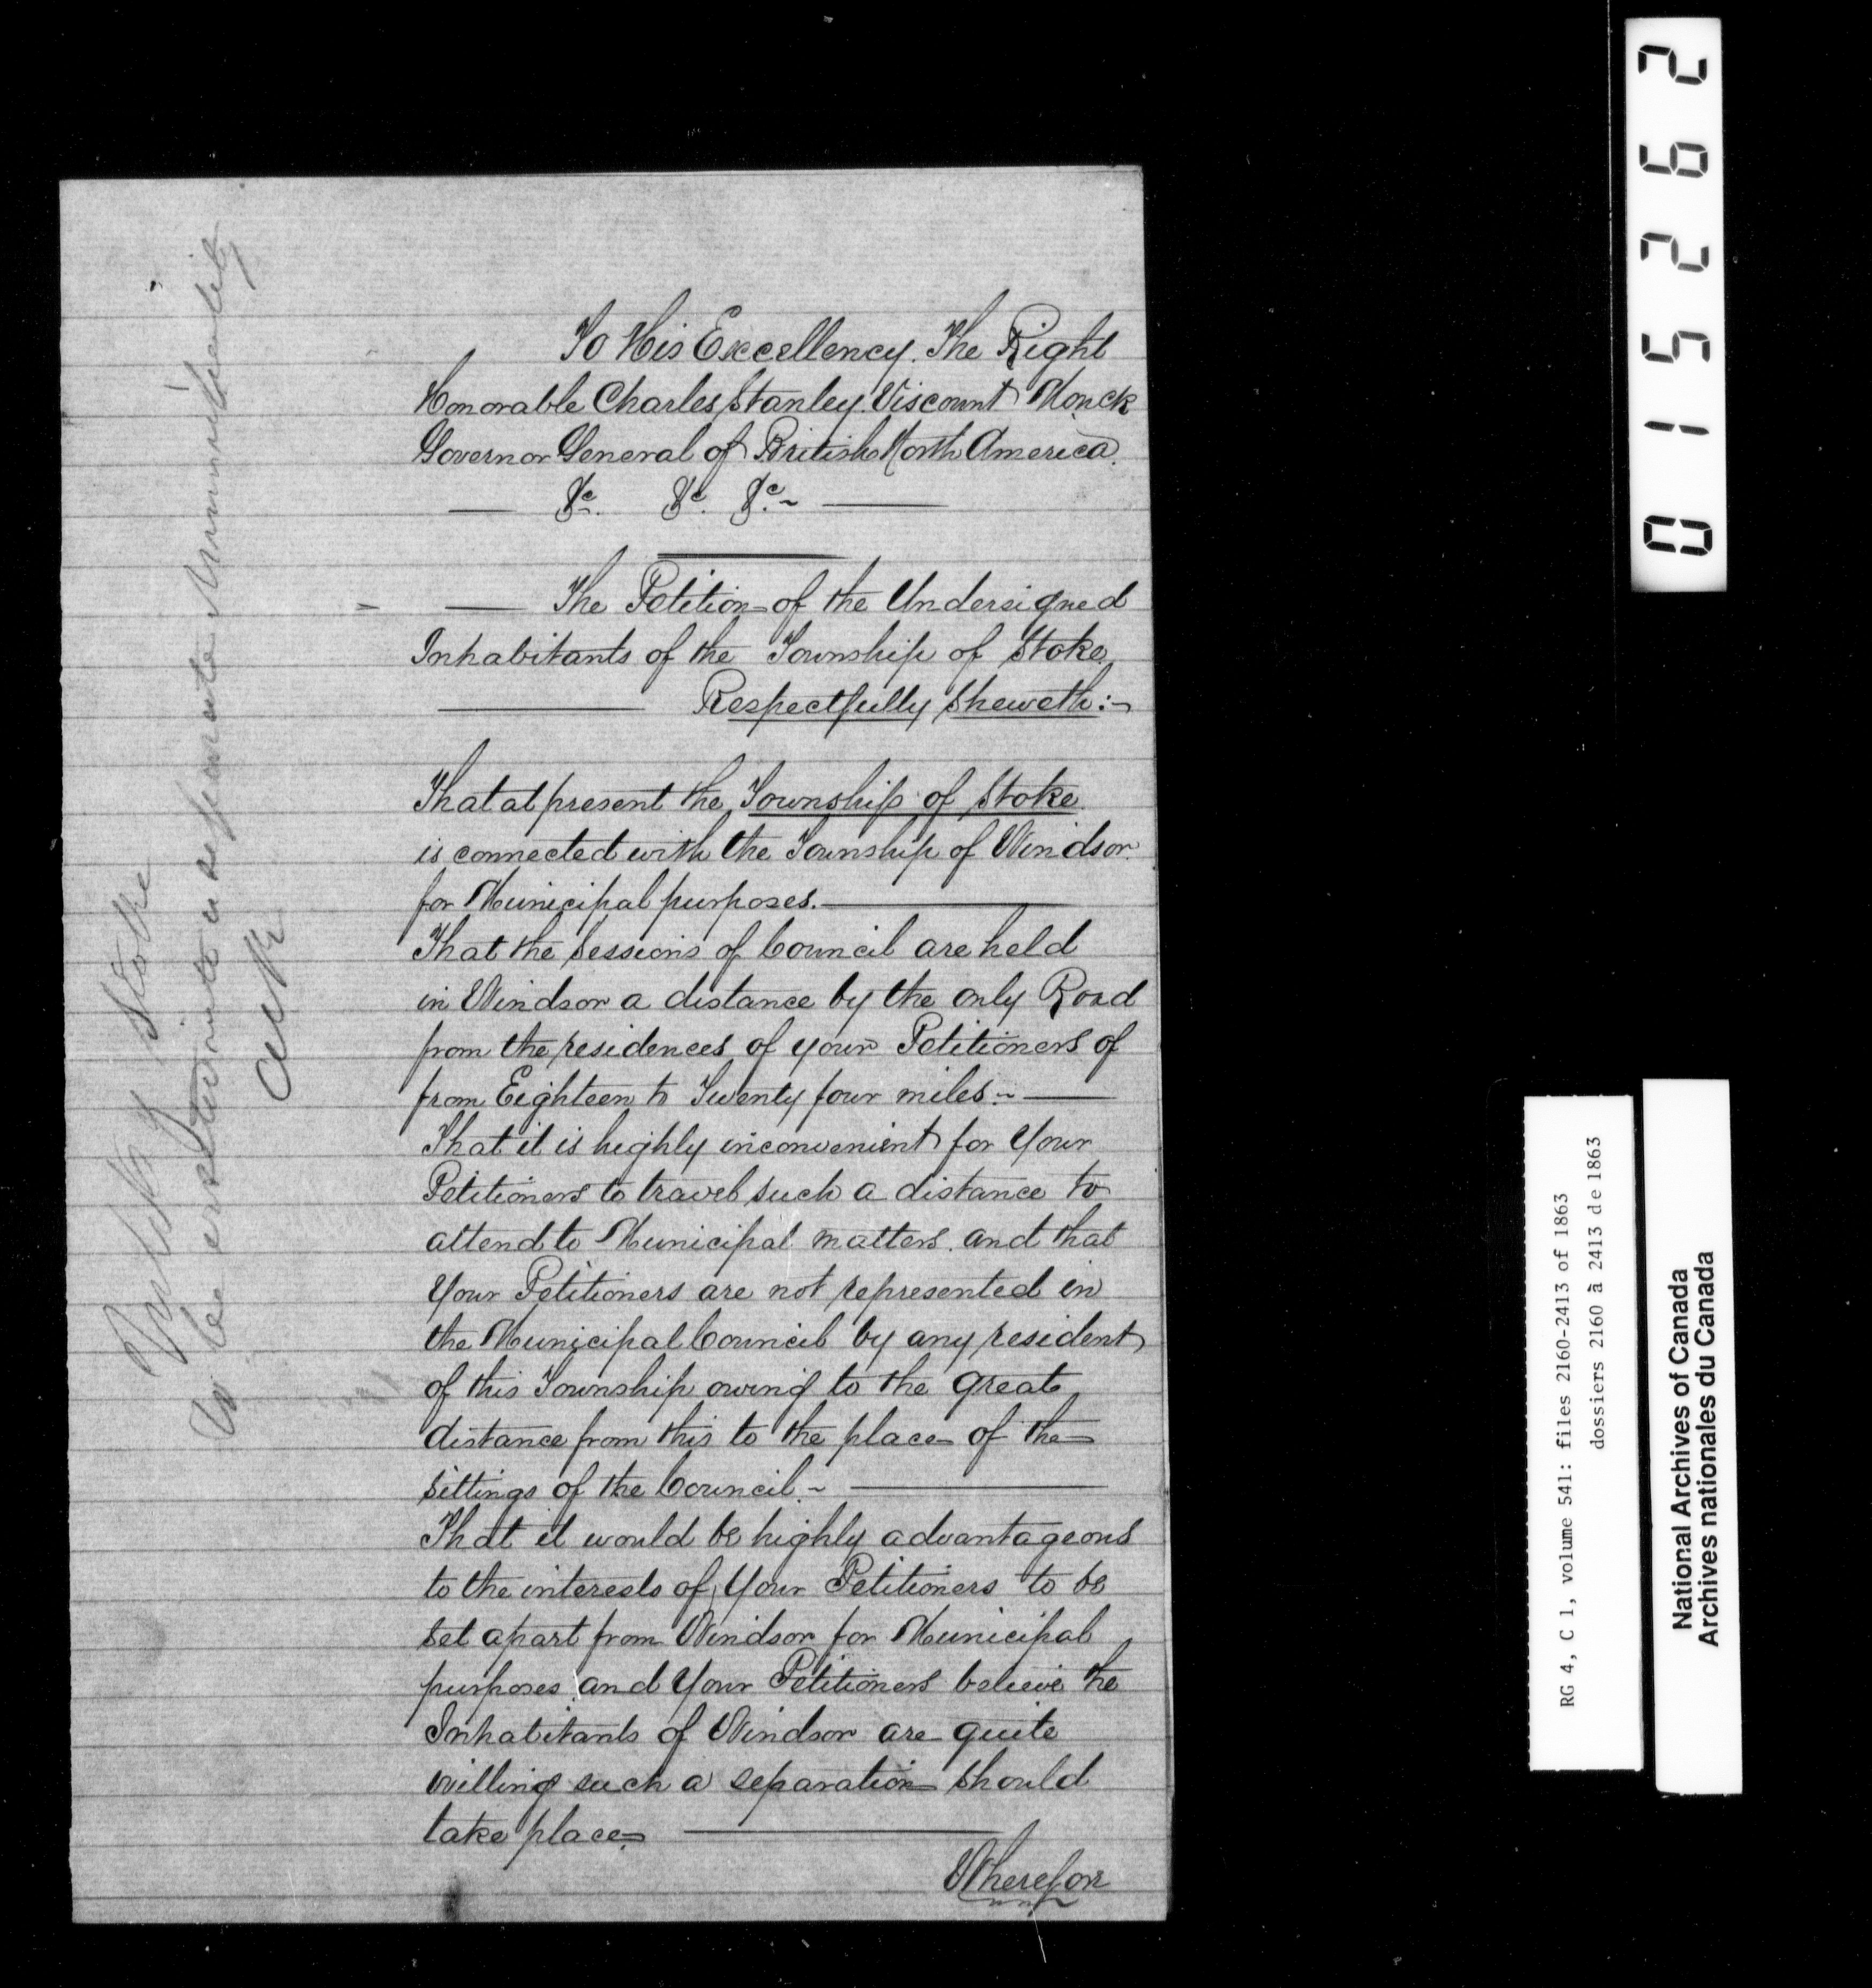 To His Excellency. The Right
Honorable Charles Stanley Viscount Monck
Governor General of British North America.
&c. &c. &c.
The Petition of the Undersigned
Inhabitants of the Township of Stoke
Respectfully Sheweth:-
That at present the Township of Stoke
is connected with the Township of Windsor
for Municipal purposes.
That the Sessions of Council are held
in Windsor a distance by the only Road
from the residences of your Petitioners of
from Eighteen to Twenty four miles.
That it is highly inconvenient for Your
Petitioners to travel such a distance to
attend to Municipal matters. and that
Your Petitioners are not represented in
the Municipal Council by any resident
of this Township owing to the great
distance from this to the place of the
sittings of the Council.
That it would be highly advantageous
to the interests of Your Petitioners to be
set apart from Windsor for Municipal
purposes and Your Petitioners believe the
Inhabitants of Windsor are quite
willing such a separation should
take place.
Wherefore
Stoke
to be erected into a separate Municipality
015262
RG 4, C 1, volume 541: files 2160-2413 of 1863
dossiers 2160 à 2413 de 1863
National Archives of Canada
Archives nationales du Canada